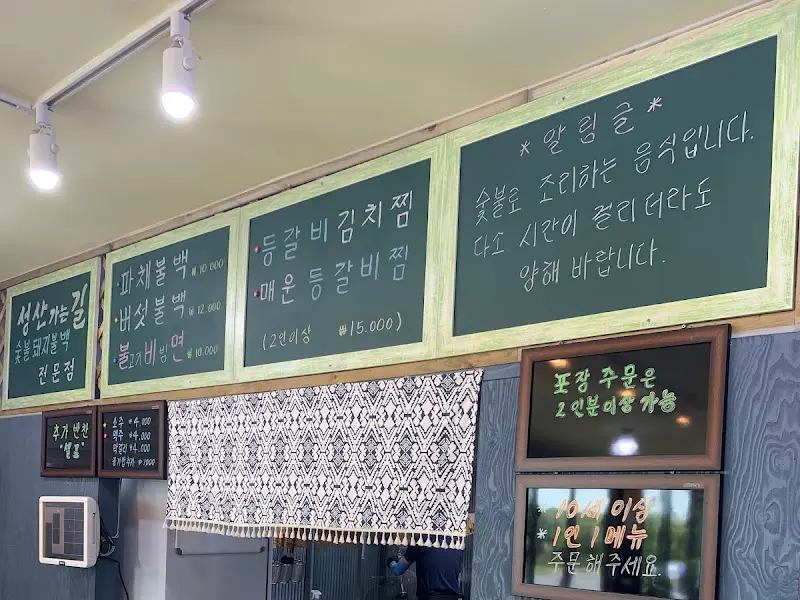 성산 가는 길
숯불돼지불백
전문점
파채불백 ₩10.000
버섯불백 ₩12.000
불고기비빔면 ₩10.000
등갈비김치찜
매운등갈비찜
(2인이상 ₩15.000)
*알림글*
숯불로 조리하는 음식입니다.
다소 시간이 걸리더라도
양해 바랍니다.
추가 반찬
"셀프"
소주 ₩4.000
맥주 ₩4.000
막걸리 ₩4.000
공기밥추가 ₩1000
포장 주문은
2인분이상 가능
*10세 이상
*1인 1메뉴
주문해주세요.